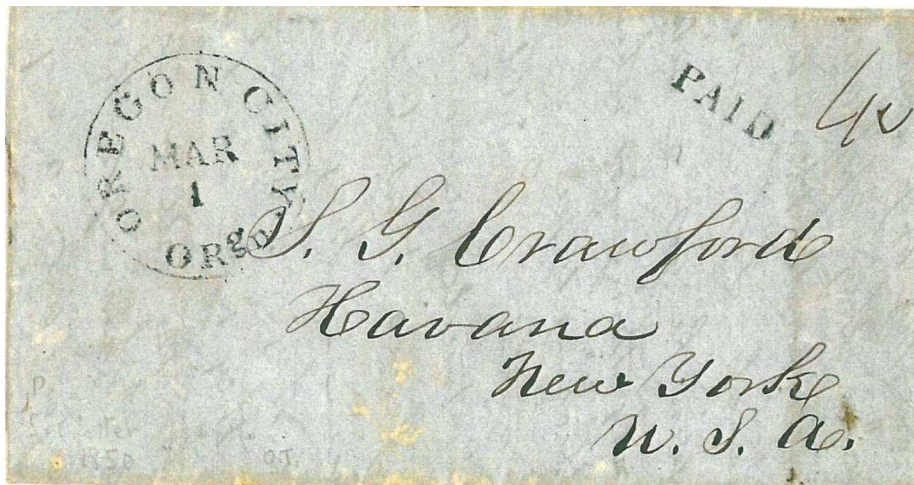 OREGON CITY
MAR
1
ORgon
PAID 40
S. G. Crawford
Havana
New York
U. S. A.
1850